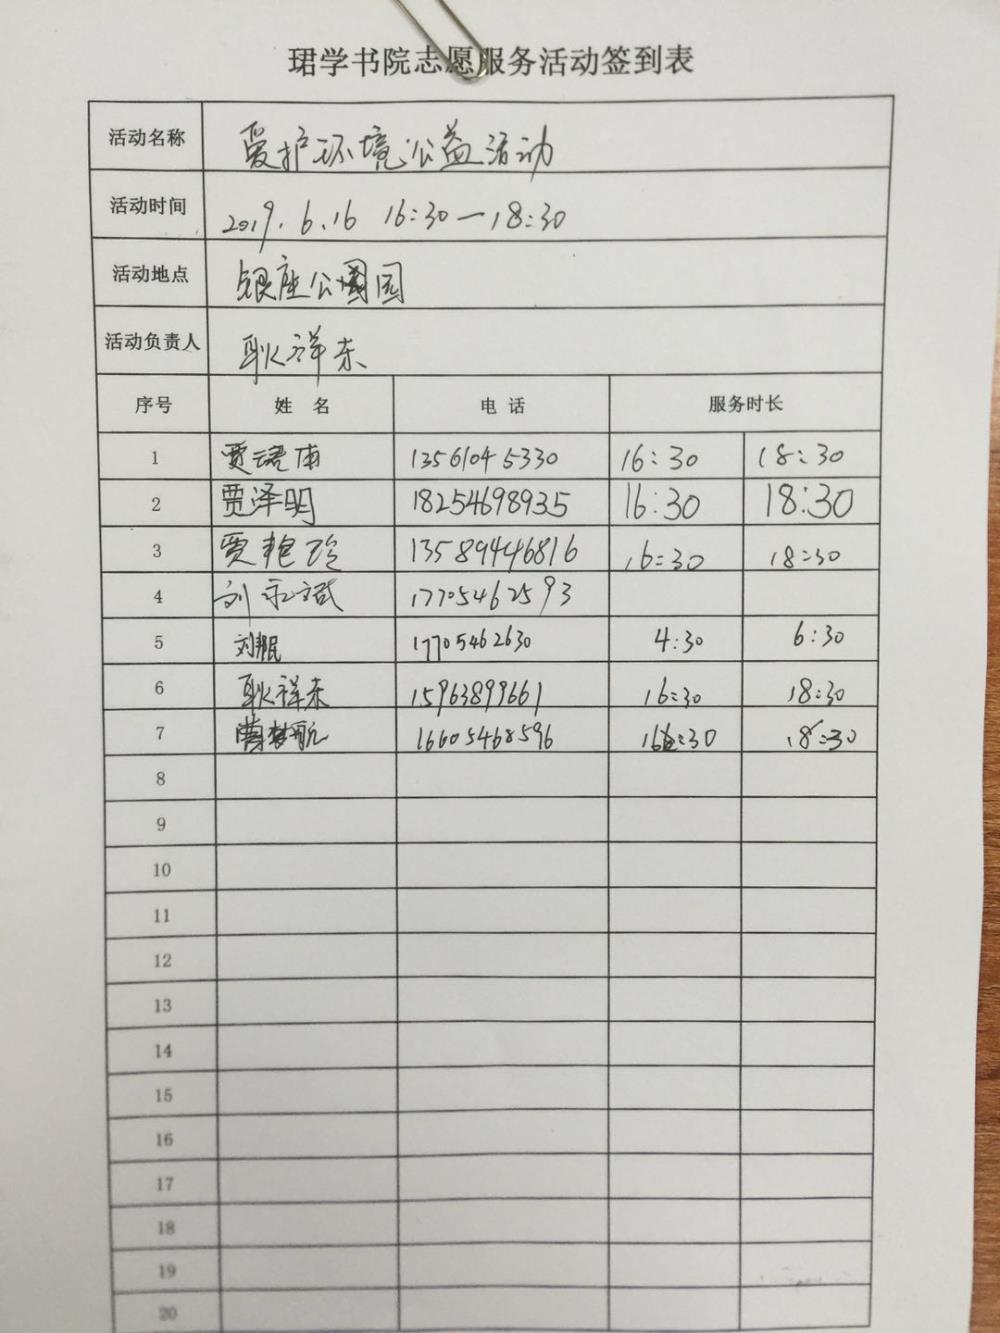 珺学书院志愿服务活动签到表
活动名称 爱护环境公益活动
活动时间 2019.6.16 16:30—18:30
活动地点 银座公园
活动负责人 耿祥东
序号 姓名 电话 服务时长
1 贾 13561045330 16:30 18:30
2 贾泽明 18254698935 16:30 18:30
3 贾艳玲 13589446816 16:30 18:30
4 刘永斌 17705462593
5 刘 17705462630 4:30 6:30
6 耿祥东 15963899661 16:30 18:30
7 16605468596 16:30 18:30
8
9
10
11
12
13
14
15
16
17
18
19
20